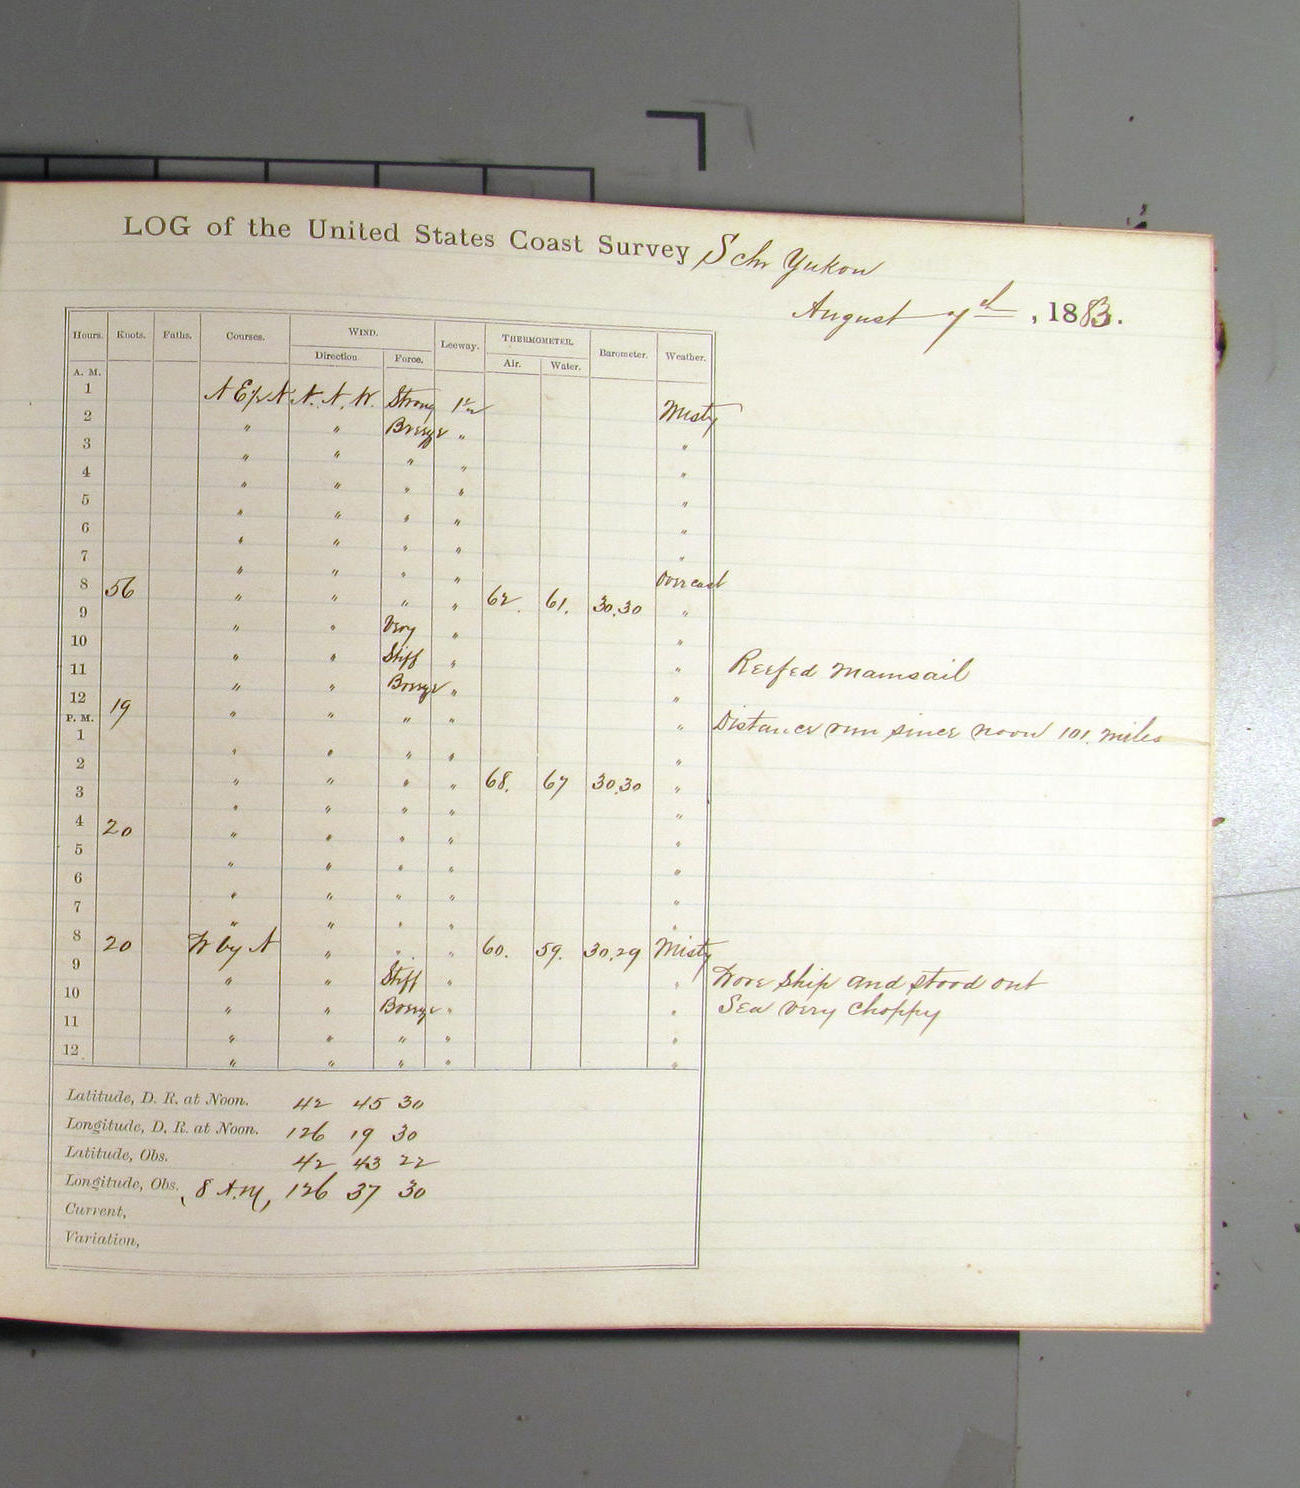 LOG of the United States Coast Survey Schr Yukon
August 7th, 1883.
Hours. Knots. Faths. Courses. WIND. Leeway. THERMOMETER. Barometer. Weather.
Direction. Force. Air. Water.
A. M.
1 N E p N N. N. W. Strong 1½ Misty
2 " " Breeze " "
3 " " " " "
4 " " " " "
5 " " " " "
6 " " " " "
7 " " " " Overcast
8 56 " " " " 62. 61. 30.30 "
9 " " Very " "
10 " " Stiff " " Reefed Mainsail
11 " " Breeze " "
12 19 " " " " " Distance run since noon 101. miles
P. M.
1 " " " " "
2 " " " " 68. 67 30.30 "
3 " " " " "
4 20 " " " " "
5 " " " " "
6 " " " " "
7 " " " " "
8 20 W by N " " " 60. 59. 30.29 Misty
9 " Stiff " " Wore Ship and stood out
10 " " Breeze " " Sea very choppy
11 " " " " "
12 " " " " "
Latitude, D. R. at Noon. 42 45 30
Longitude, D. R. at Noon. 126 19 30
Latitude, Obs. 42 43 22
Longitude, Obs. 8 A.M, 126 37 30
Current,
Variation,